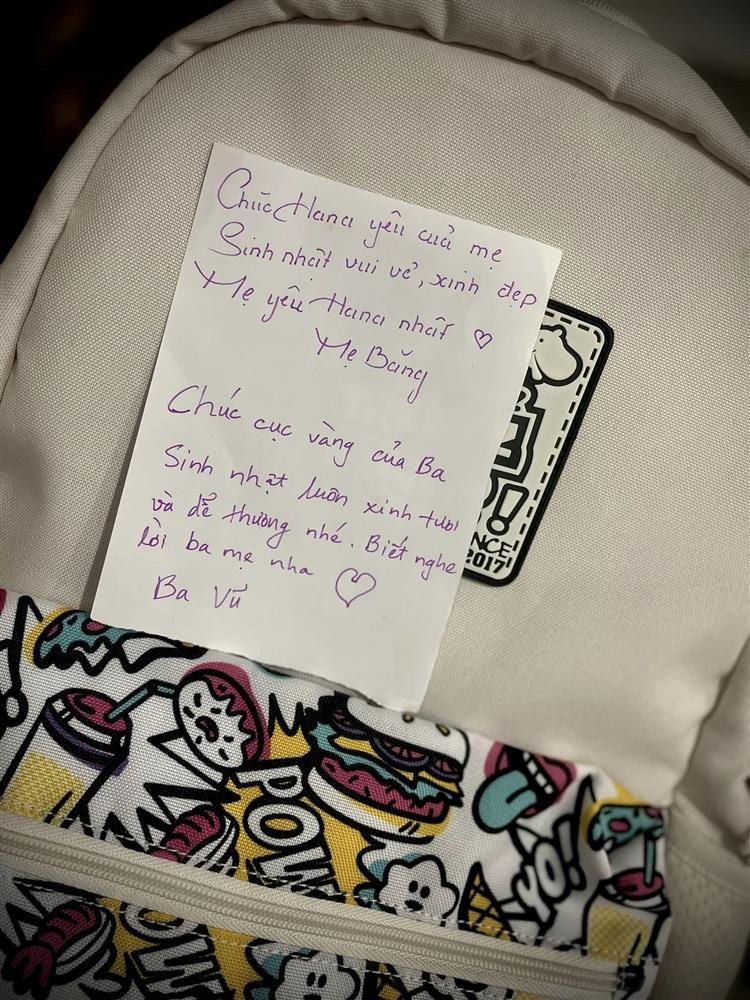 Chúc Hana yêu của mẹ
Sinh nhật vui vẻ, xinh đẹp
Mẹ yêu Hana nhất ♡
Mẹ Băng
Chúc cục vàng của Ba
Sinh nhật luôn xinh tươi
và dễ thương nhé. Biết nghe
lời ba mẹ nha ♡
Ba Vũ
!
NCE
2017
POW
YO!
OW